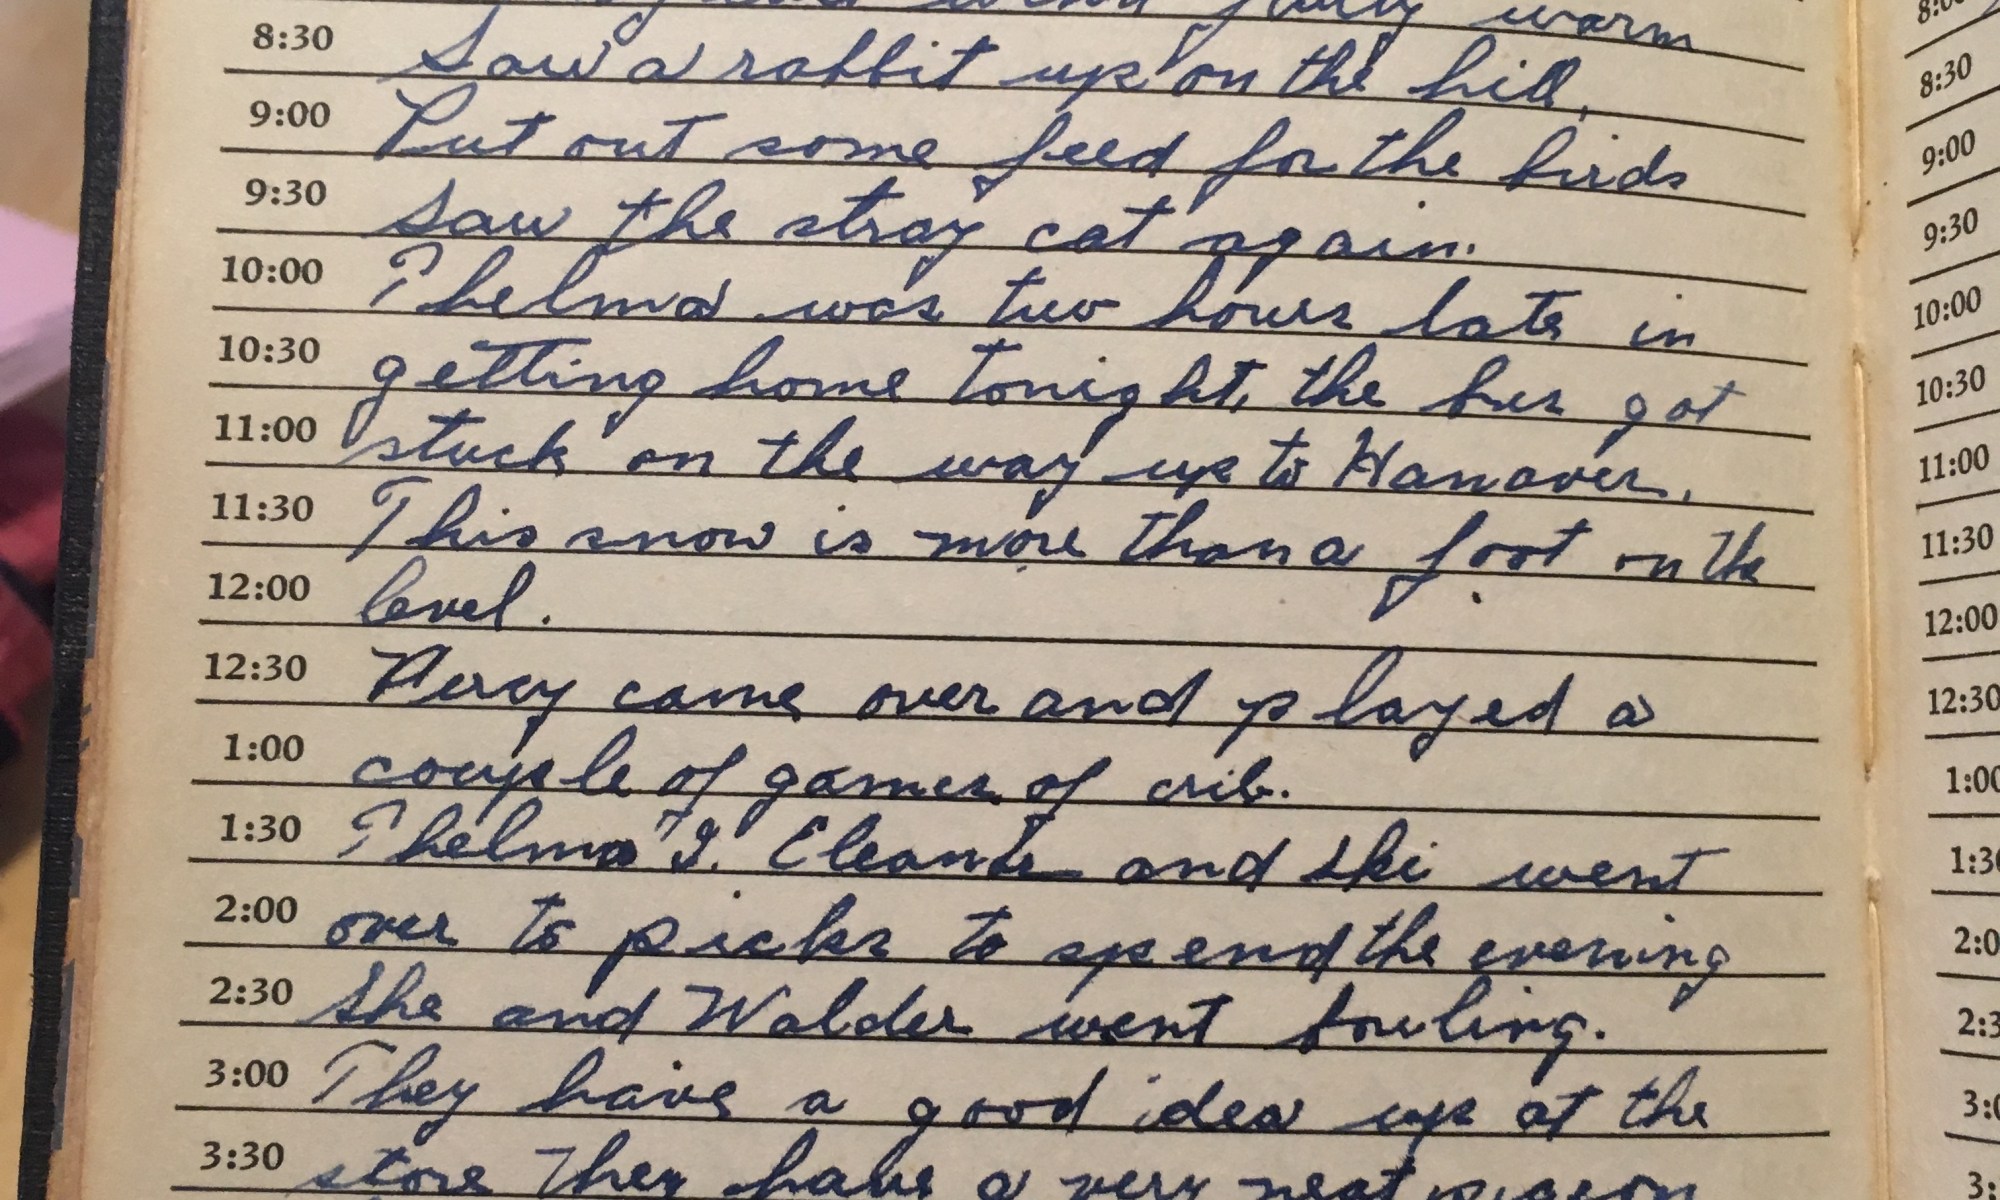 warm
8:30 Saw a rabbit up on the hill,
9:00 Put out some feed for the birds
9:30 Saw the stray cat again.
10:00 Thelma was two hours late in
10:30 getting home tonight, the bus got
11:00 stuck on the way up to Hanover.
11:30 This snow is more than a foot on the
12:00 level.
12:30 Percy came over and played a
1:00 couple of games of crib.
1:30 Thelma and Ski went
2:00 over to picks to spend the evening
2:30 She and Walder went bowling.
3:00 They have a good idea up at the
3:30 store They have a very neat
8:30
9:00
9:30
10:00
10:30
11:00
11:30
12:00
12:30